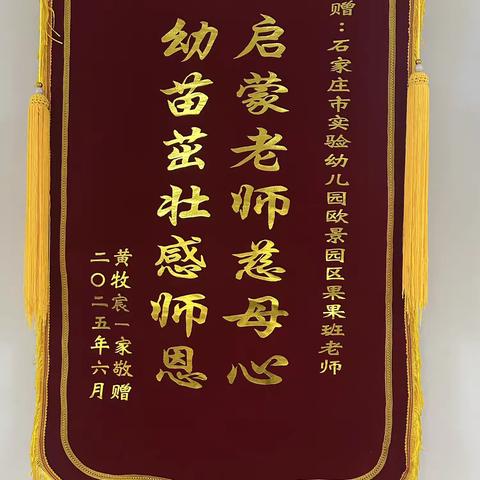 赠：石家庄市实验幼儿园欧景园区果果班老师
启蒙老师慈母心
幼苗茁壮感师恩
黄牧宸一家敬赠
二〇二五年六月